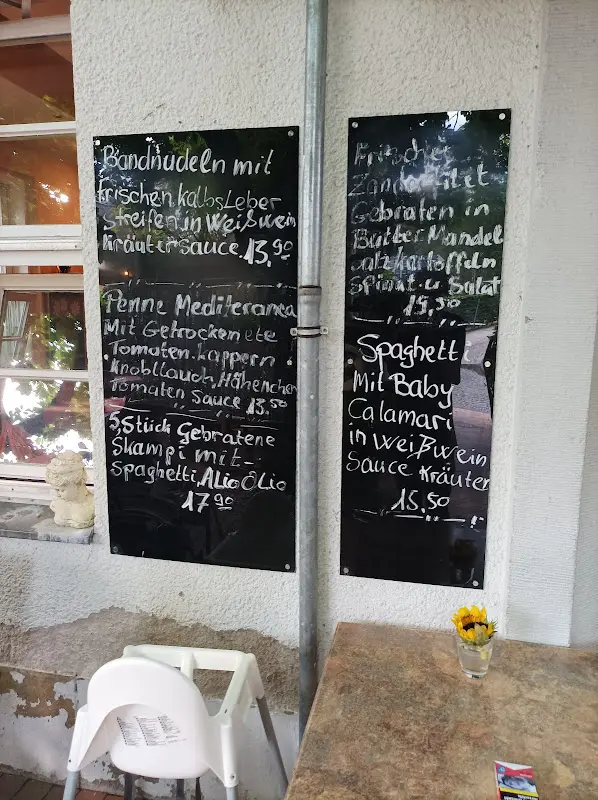 Bandnudeln mit
frischen kalbsLeber
Streifen in Weißwein
Kräutersauce 13,90
Penne Mediteranea
Mit Getrockenete
Tomaten. kappern
Knobllauch, Hähnchen
Tomaten Sauce 13,50
5, Stück Gebratene
Skampi mit -
Spaghetti, ALio OLio
17 90
Frisches
Zanderfilet
Gebraten in
Butter Mandel
salzkartoffeln
Spinat. u Salat
15,50
Spaghetti
Mit Baby
Calamari
in weißwein
Sauce Kräuter
15,50